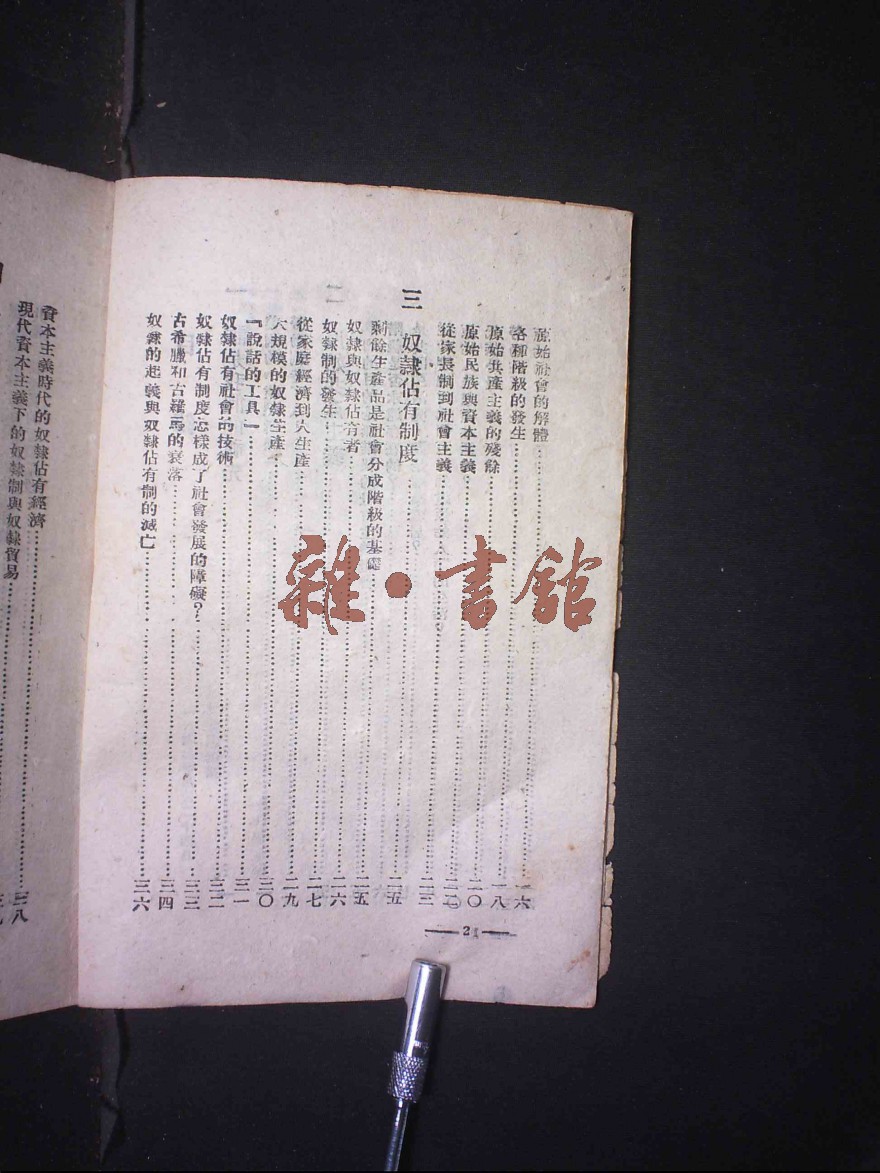 原始社會的解體……一六
各種階級的發生……一八
原始共產主義的殘餘……二〇
原始民族與資本主義……二二
從家長制到社會主義……二三
三 奴隸佔有制度……二五
剩餘生產品是社會分成階級的基礎……二五
奴隸與奴隸佔有者……二六
奴隸制的發生……二七
從家庭經濟到大生產……二九
大規模的奴隸生產……三〇
『說話的工具』……三一
奴隸佔有社會的技術……三二
奴隸佔有制度怎樣成了社會發展的障礙？……三三
古希臘和古羅馬的衰落……三四
奴隸的起義與奴隸佔有制的滅亡……三六
2
資本主義時代的奴隸佔有經濟……三八
現代資本主義下的奴隸制與奴隸貿易……
雜·書館